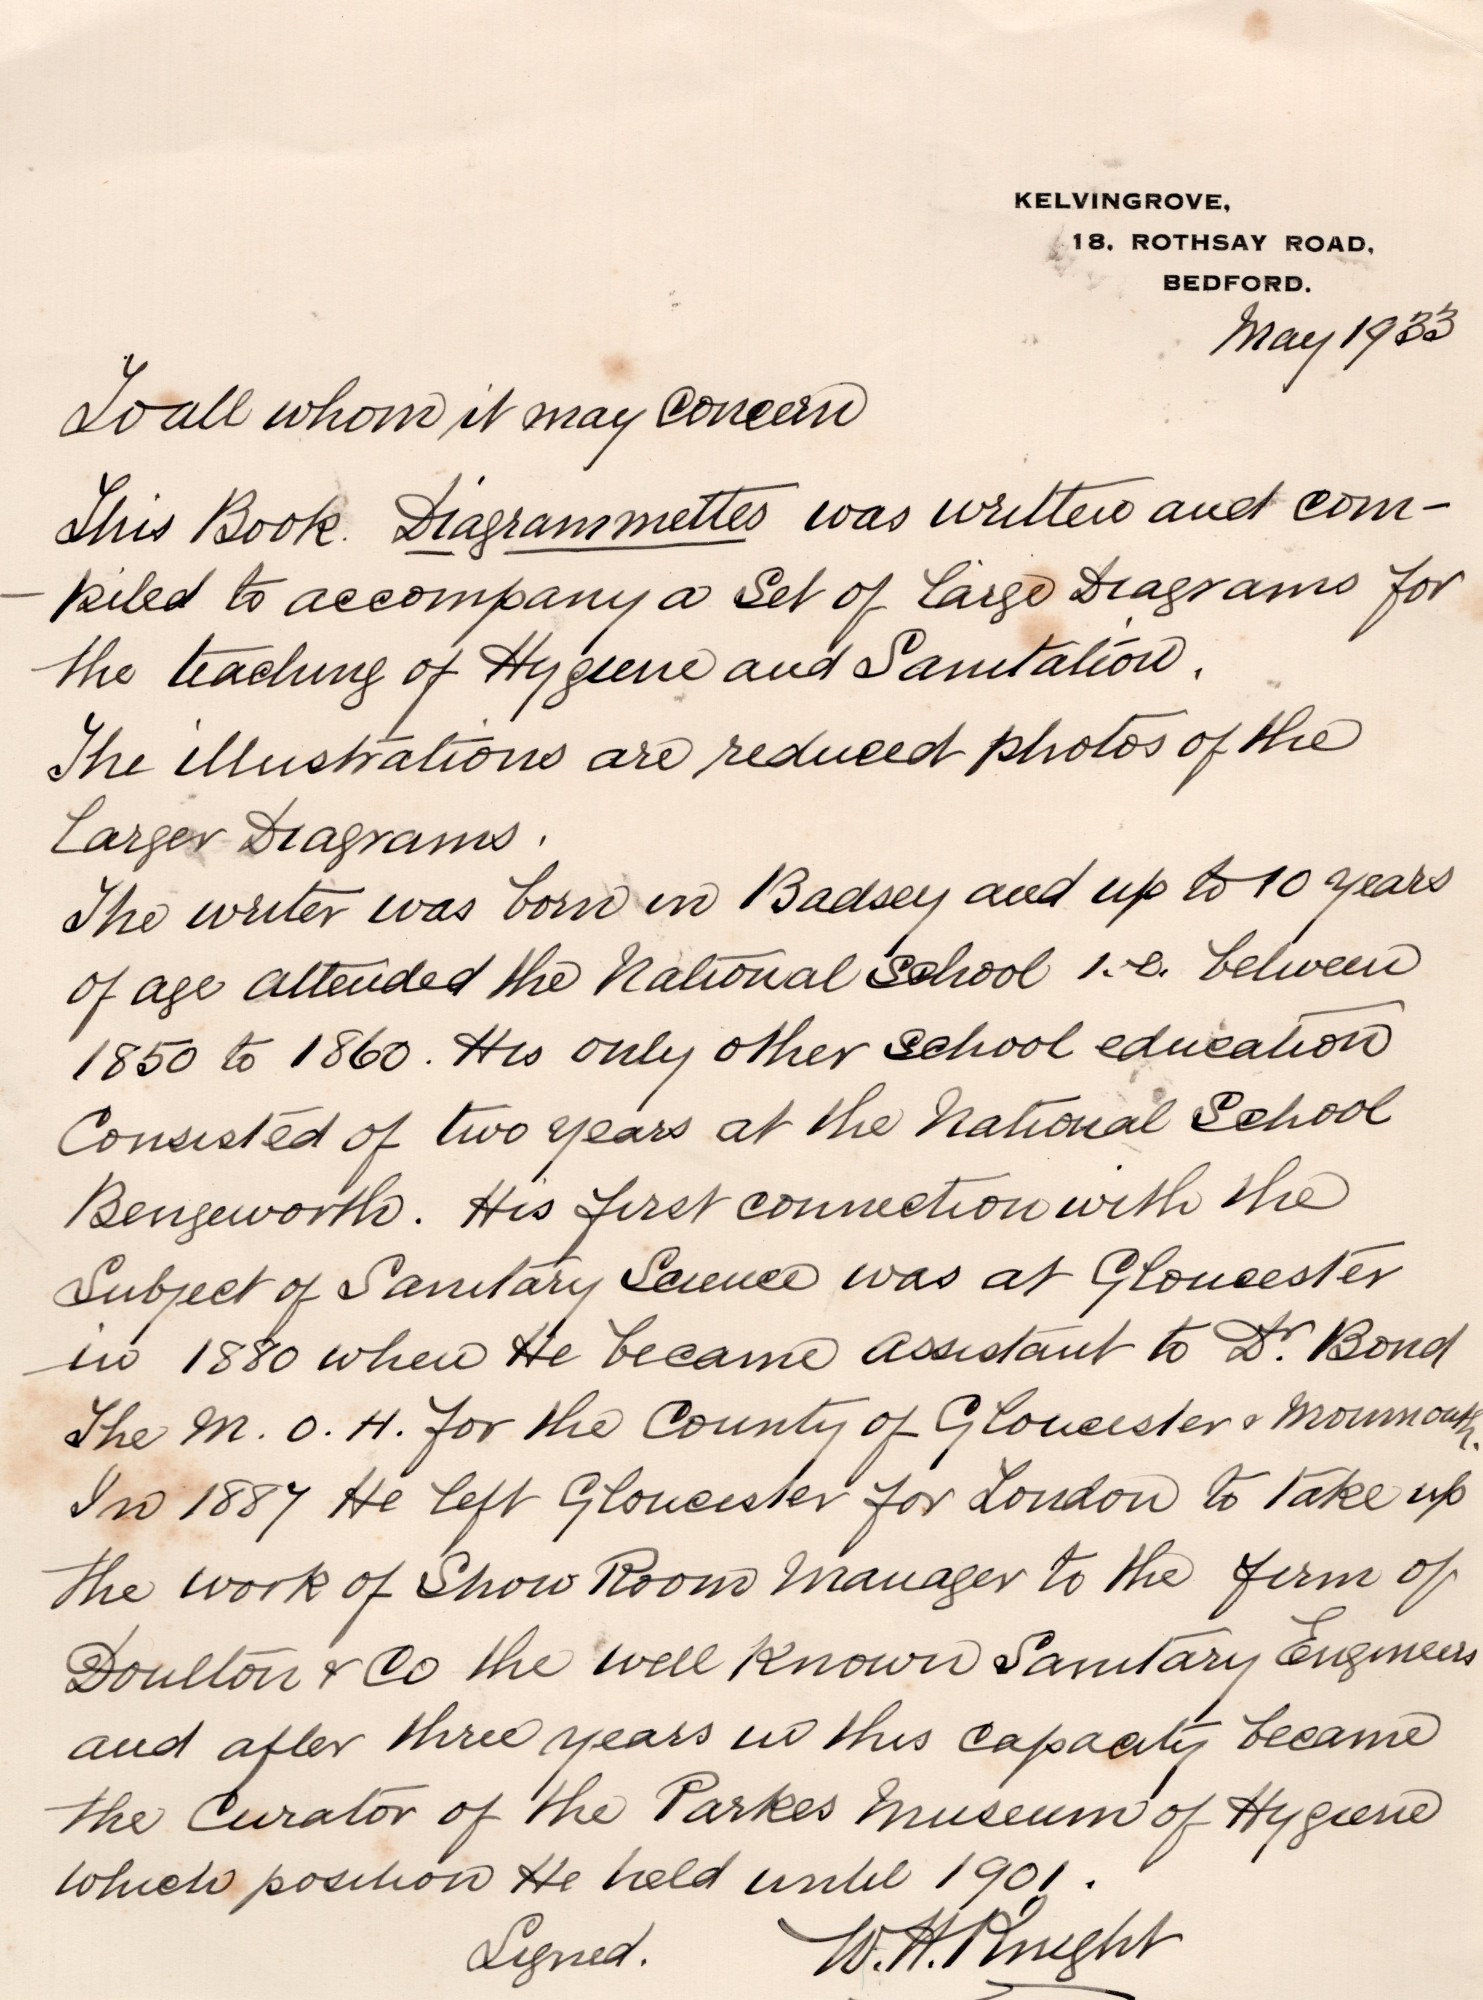 KELVINGROVE,
18, ROTHSAY ROAD,
BEDFORD.
May 1933
To all whom it may Concern
This Book. Diagrammettes was written and com-
-piled to accompany a Set of Large Diagrams for
the teaching of Hygiene and Sanitation.
The illustrations are reduced photos of the
Larger Diagrams.
The writer was born in Badsey and up to 10 years
of age attended the National School i.e. between
1850 to 1860. His only other School education
Consisted of two years at the National School
Bengeworth. His first connection with the
Subject of Sanitary Science was at Gloucester
in 1880 when He became assistant to Dr. Bond
The M.O.H. for the County of Gloucester & Monmouth.
In 1887 He left Gloucester for London to take up
the work of Show Room Manager to the firm of
Doulton & Co the well known Sanitary Engineers
and after three years in this capacity became
the Curator of the Parkes Museum of Hygiene
which position He held until 1901.
Signed. W.H. Knight